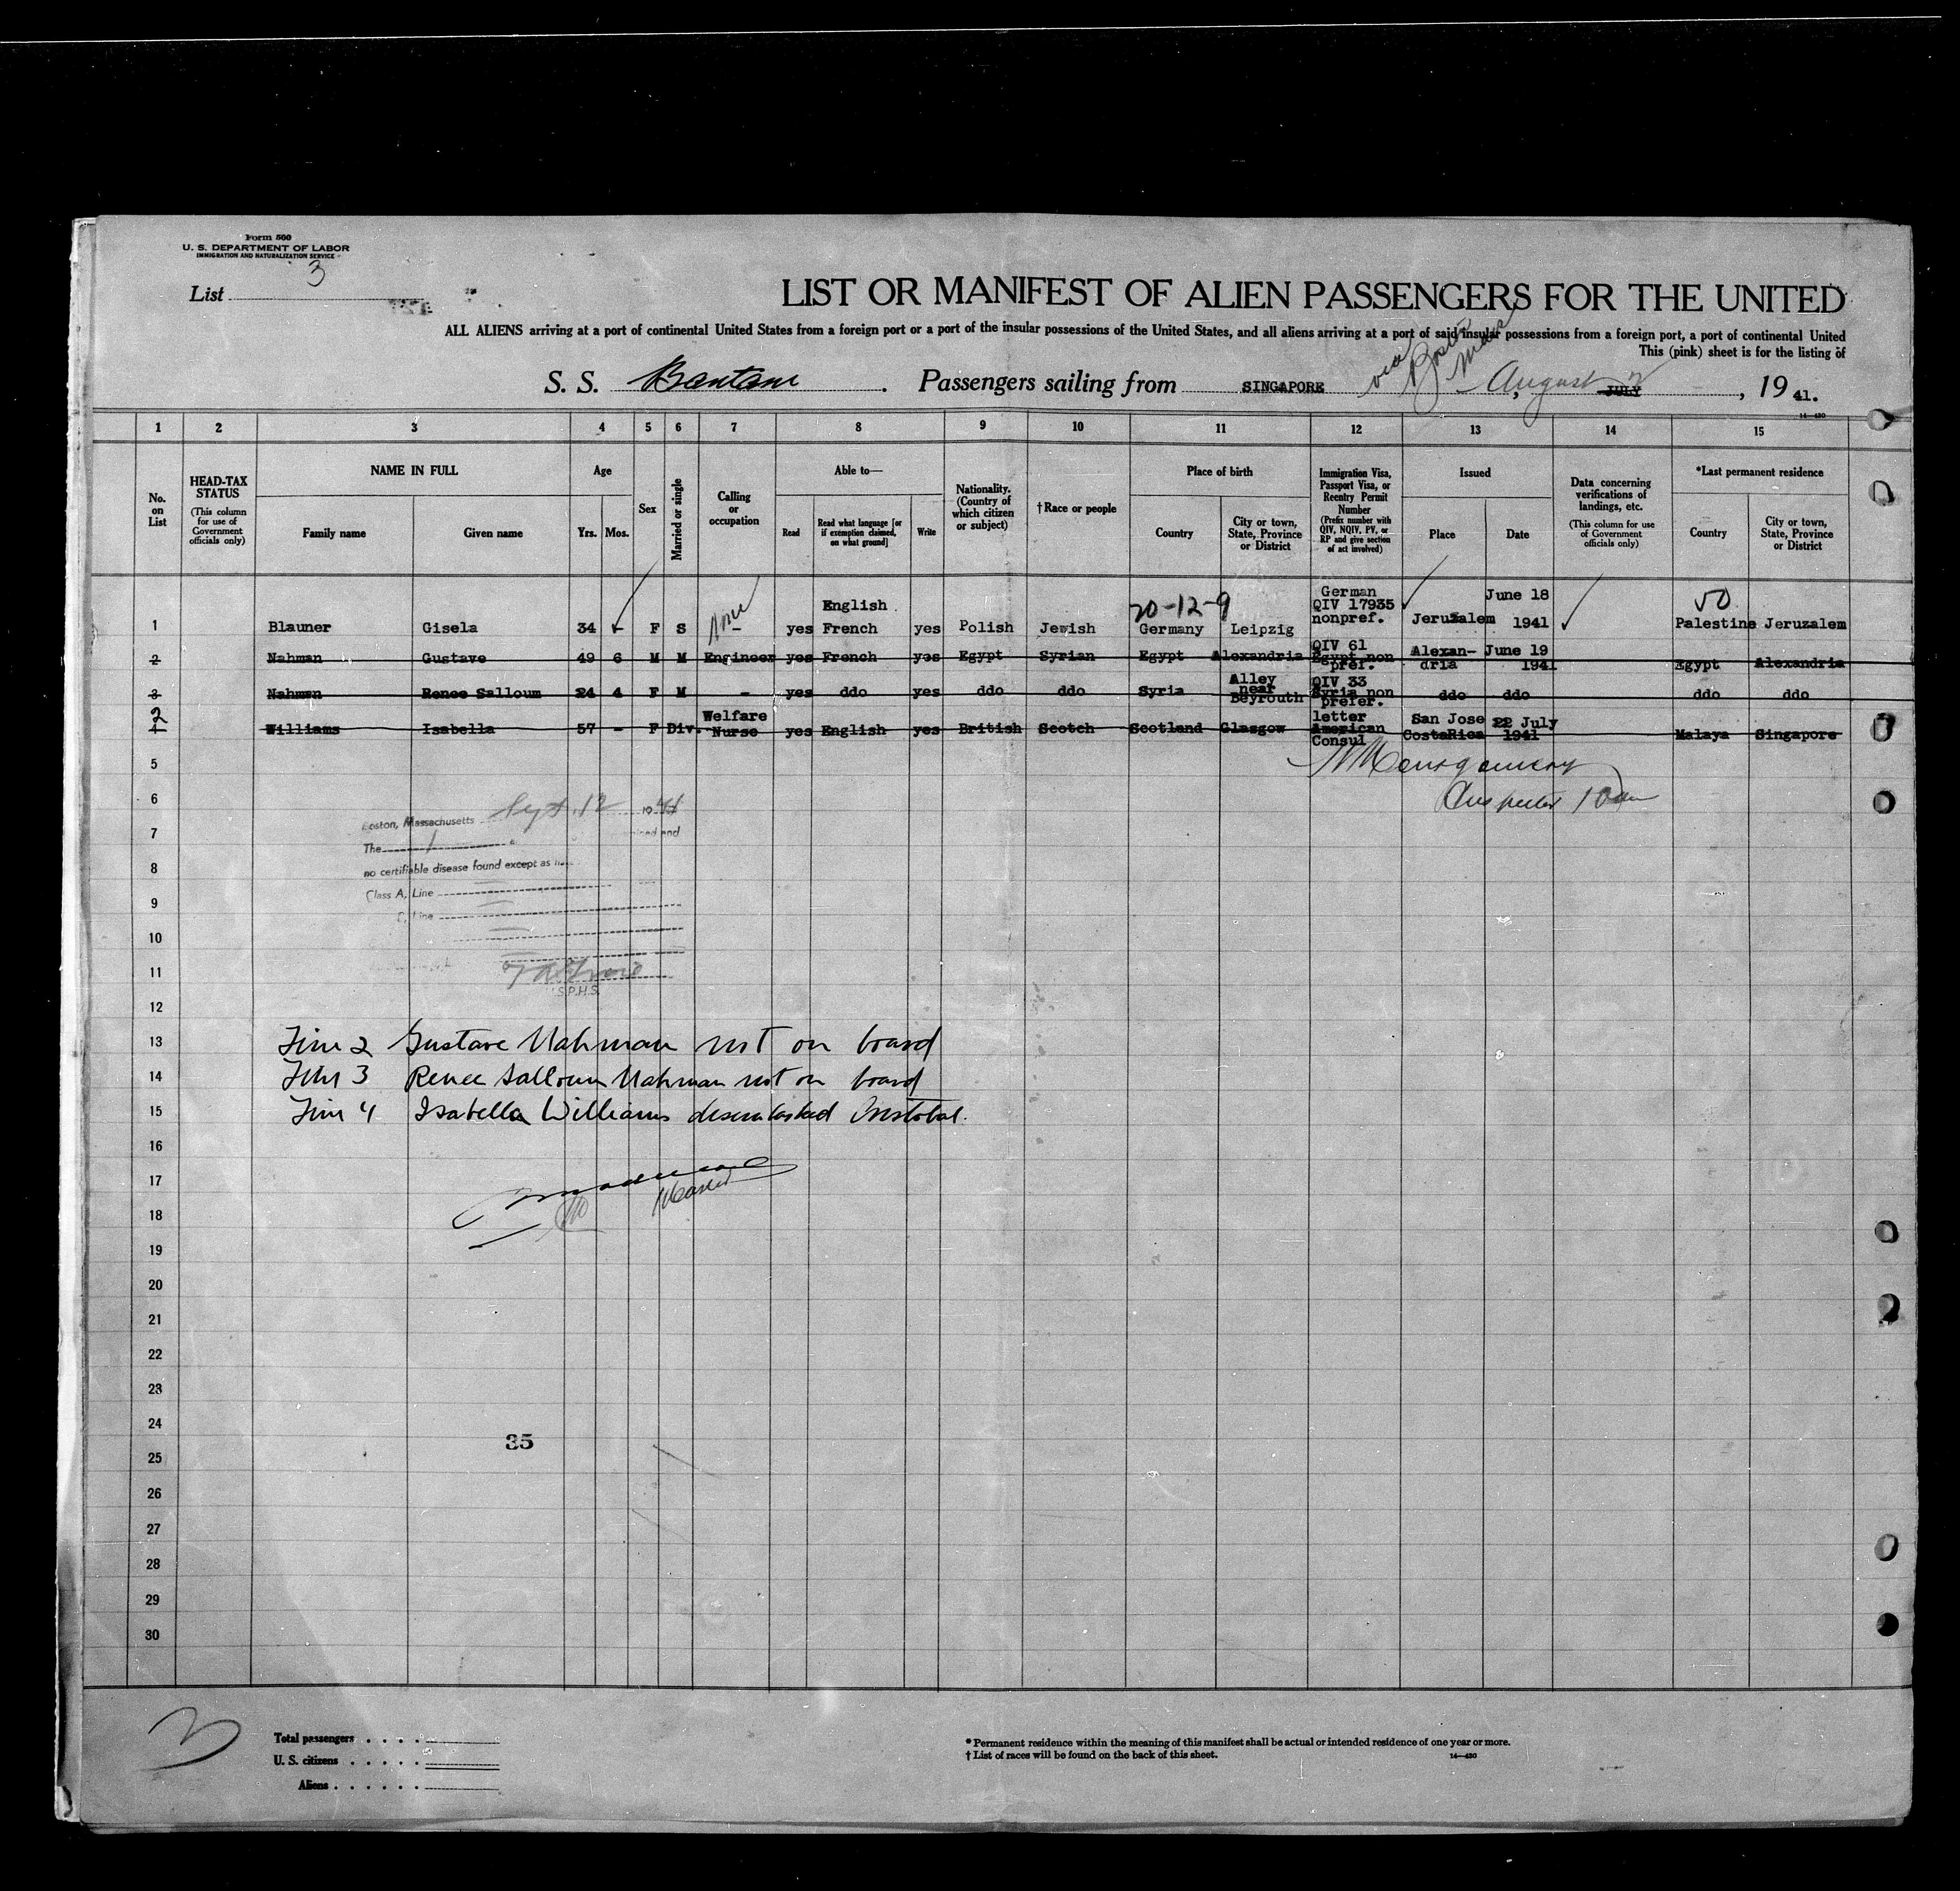 Form 500
U. S. DEPARTMENT OF LABOR
IMMIGRATION AND NATURALIZATION SERVICE
List 3
LIST OR MANIFEST OF ALIEN PASSENGERS FOR THE UNITED
ALL ALIENS arriving at a port of continental United States from a foreign port or a port of the insular possessions of the United States, and all aliens arriving at a port of said insular possessions from a foreign port, a port of continental United
This (pink) sheet is for the listing of
via Boston Mass
S. S. Bantam . Passengers sailing from SINGAPORE , August 2 JULY , 19 41.
14-430
1 2 3 4 5 6 7 8 9 10 11 12 13 14 15
No. on List
HEAD-TAX STATUS
(This column for use of Government officials only)
NAME IN FULL
Family name Given name
Age
Yrs. Mos.
Sex
Married or single
Calling or occupation
Able to—
Read
Read what language [or if exemption claimed, on what ground]
Write
Nationality. (Country of which citizen or subject)
†Race or people
Place of birth
Country
City or town, State, Province or District
Immigration Visa, Passport Visa, or Reentry Permit Number
(Prefix number with QIV, NQIV, PV, or RP and give section of act involved)
Issued
Place Date
Data concerning verifications of landings, etc.
(This column for use of Government officials only)
*Last permanent residence
Country
City or town, State, Province or District
1 Blauner Gisela 34 - F S None - yes English French yes Polish Jewish 20-12-9 Germany Leipzig German QIV 17935 nonpref. Jeruzalem June 18 1941 Palestine Jeruzalem
2 Nahman Gustave 49 6 M M Engineer yes French yes Egypt Syrian Egypt Alexandria QIV 61 Egypt non pref. Alexandria June 19 1941 Egypt Alexandria
3 Nahman Renee Salloum 24 4 F M - yes ddo yes ddo ddo Syria Alley near Beyrouth QIV 33 Syria non prefer. ddo ddo ddo ddo
2 4 Williams Isabella 57 - F Div. Welfare Nurse yes English yes British Scotch Scotland Glasgow letter American Consul San Jose CostaRica 22 July 1941 Malaya Singapore
5 Montgomery
6 Inspector
Boston, Massachusetts Sept. 12 1941
7
The 1
8
no certifiable disease found except as
9
Class A, Line
C, Line
10
11
S.P.H.S.
12
13 Line 2 Gustave Nahman not on board
14 Line 3 Renee Salloum Nahman not on board
15 Line 4 Isabella Williams disembarked Cristobal.
16
17
Master
18
19
20
21
22
23
24
35
25
26
27
28
29
30
3
Total passengers
U. S. citizens
Aliens
* Permanent residence within the meaning of this manifest shall be actual or intended residence of one year or more.
† List of races will be found on the back of this sheet.
14-430